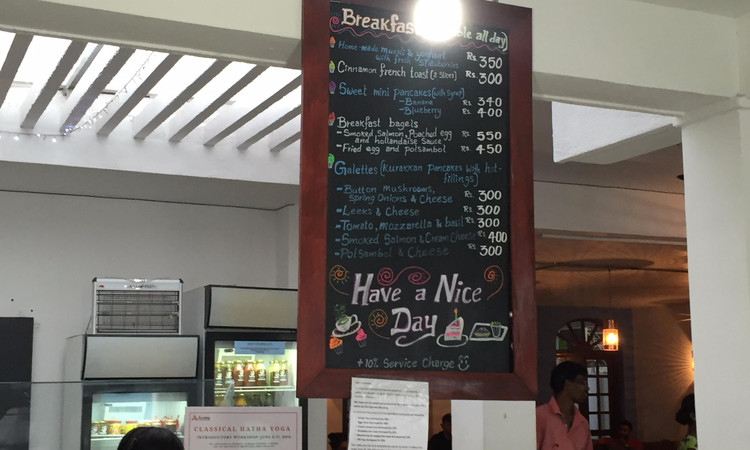 Breakfast ble all day)
Home-made muesli & yoghurt
with fresh Strawberries Rs 350
Cinnamon french toast (2 slices) Rs 300
Sweet mini pancakes (with syrup)
- Banana Rs 340
- Blueberry Rs 400
Breakfast bagels
- Smoked Salmon, Poached egg
and hollandaise Sauce Rs 550
- Fried egg and polsambol Rs 450
Galettes (Kurakkan Pancakes with hot-
fillings)
- Button mushrooms,
Spring Onions & Cheese Rs 300
- Leeks & Cheese Rs 300
- Tomato, mozzarella & basil Rs 300
- Smoked Salmon & Cream Cheese Rs 400
- Polsambol & Cheese Rs 300
Have a Nice
Day
+ 10% Service Charge
CLASSICAL HATHA YOGA